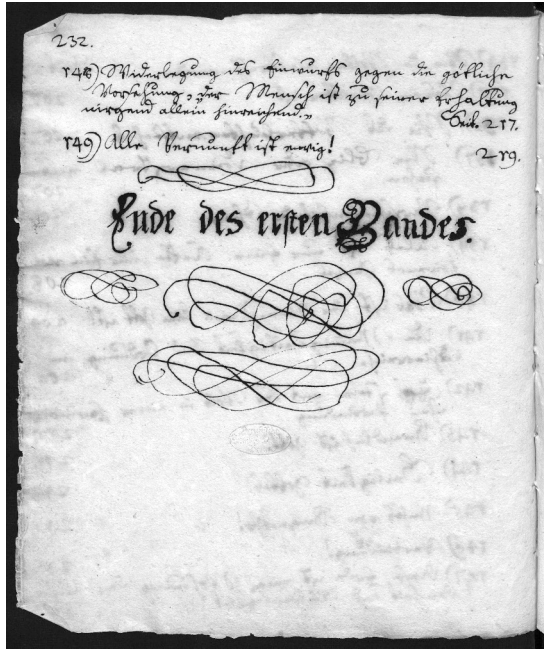 232.
148) Widerlegung des Einwurfs gegen die götliche
Vorsehung, „der Mensch ist zu seiner Erhaltung
nirgend allein hinreichend.„
Seit. 217.
149) Alle Vernunft ist ewig!
219.
Ende des ersten Bandes.